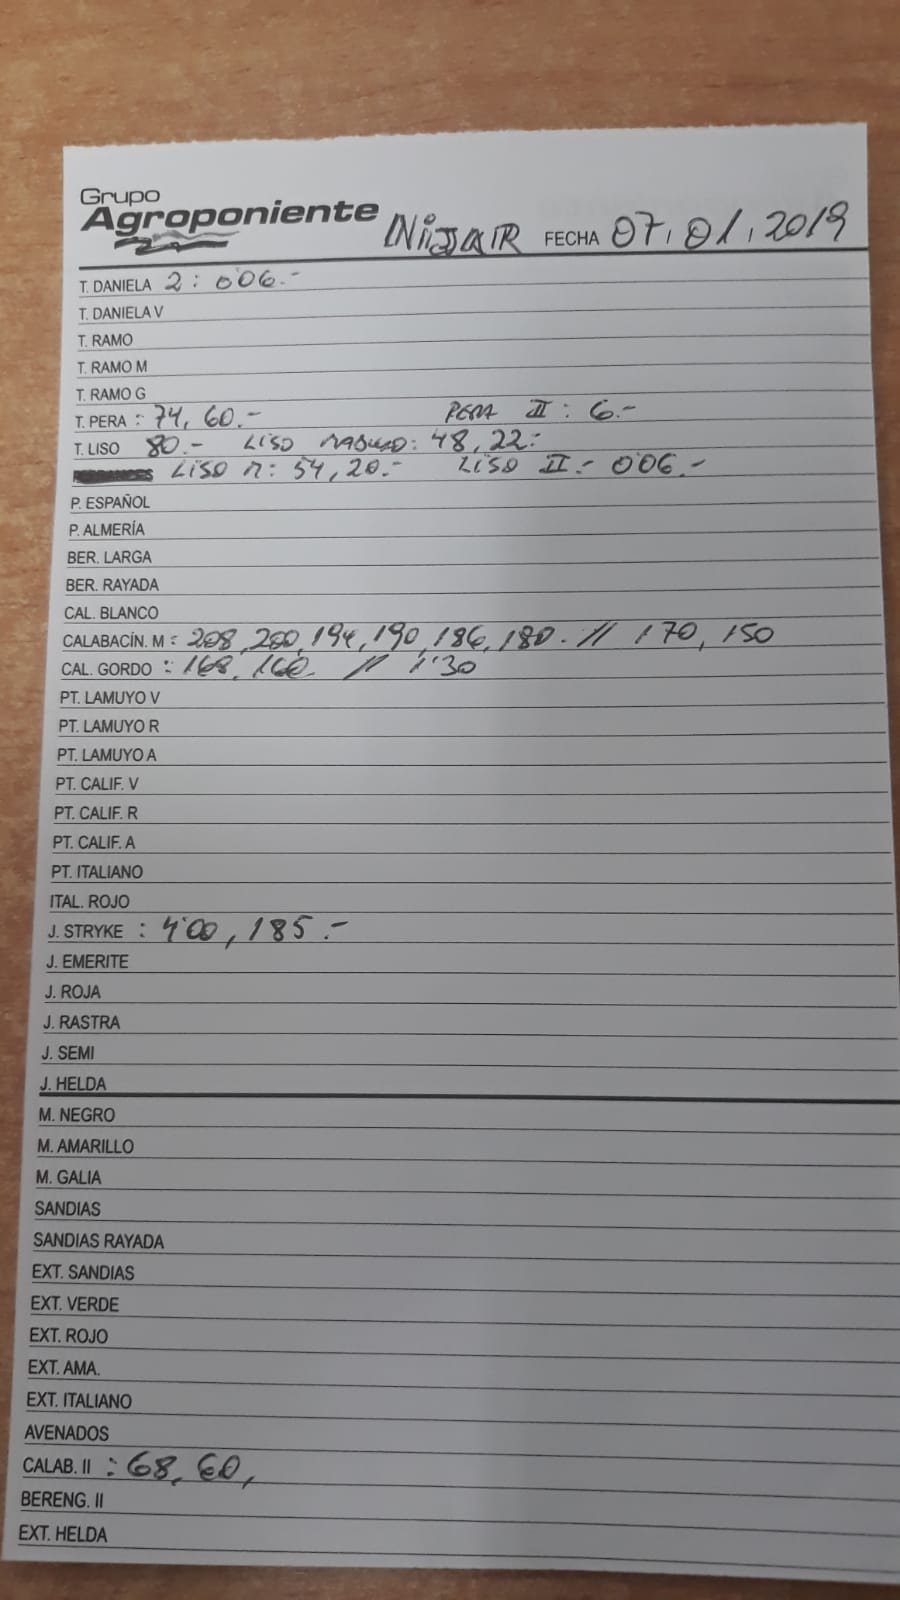 Grupo
Agroponiente NIJAR FECHA 07,01,2019
T. DANIELA 2: 006.-
T. DANIELA V
T. RAMO
T. RAMO M
T. RAMO G
T. PERA : 74, 60.- PERA II : 6.-
T. LISO 80.- LISO MADURO: 48, 22:
LISO M: 54, 20.- LISO II.- 006.-
P. ESPAÑOL
P. ALMERÍA
BER. LARGA
BER. RAYADA
CAL. BLANCO
CALABACÍN. M = 208, 200, 194, 190, 186, 180. // 170, 150
CAL. GORDO : 168, 160 // 1'30
PT. LAMUYO V
PT. LAMUYO R
PT. LAMUYO A
PT. CALIF. V
PT. CALIF. R
PT. CALIF. A
PT. ITALIANO
ITAL. ROJO
J. STRYKE : 4'00, 185.-
J. EMERITE
J. ROJA
J. RASTRA
J. SEMI
J. HELDA
M. NEGRO
M. AMARILLO
M. GALIA
SANDIAS
SANDIAS RAYADA
EXT. SANDIAS
EXT. VERDE
EXT. ROJO
EXT. AMA.
EXT. ITALIANO
AVENADOS
CALAB. II : 68, 60,
BERENG. II
EXT. HELDA